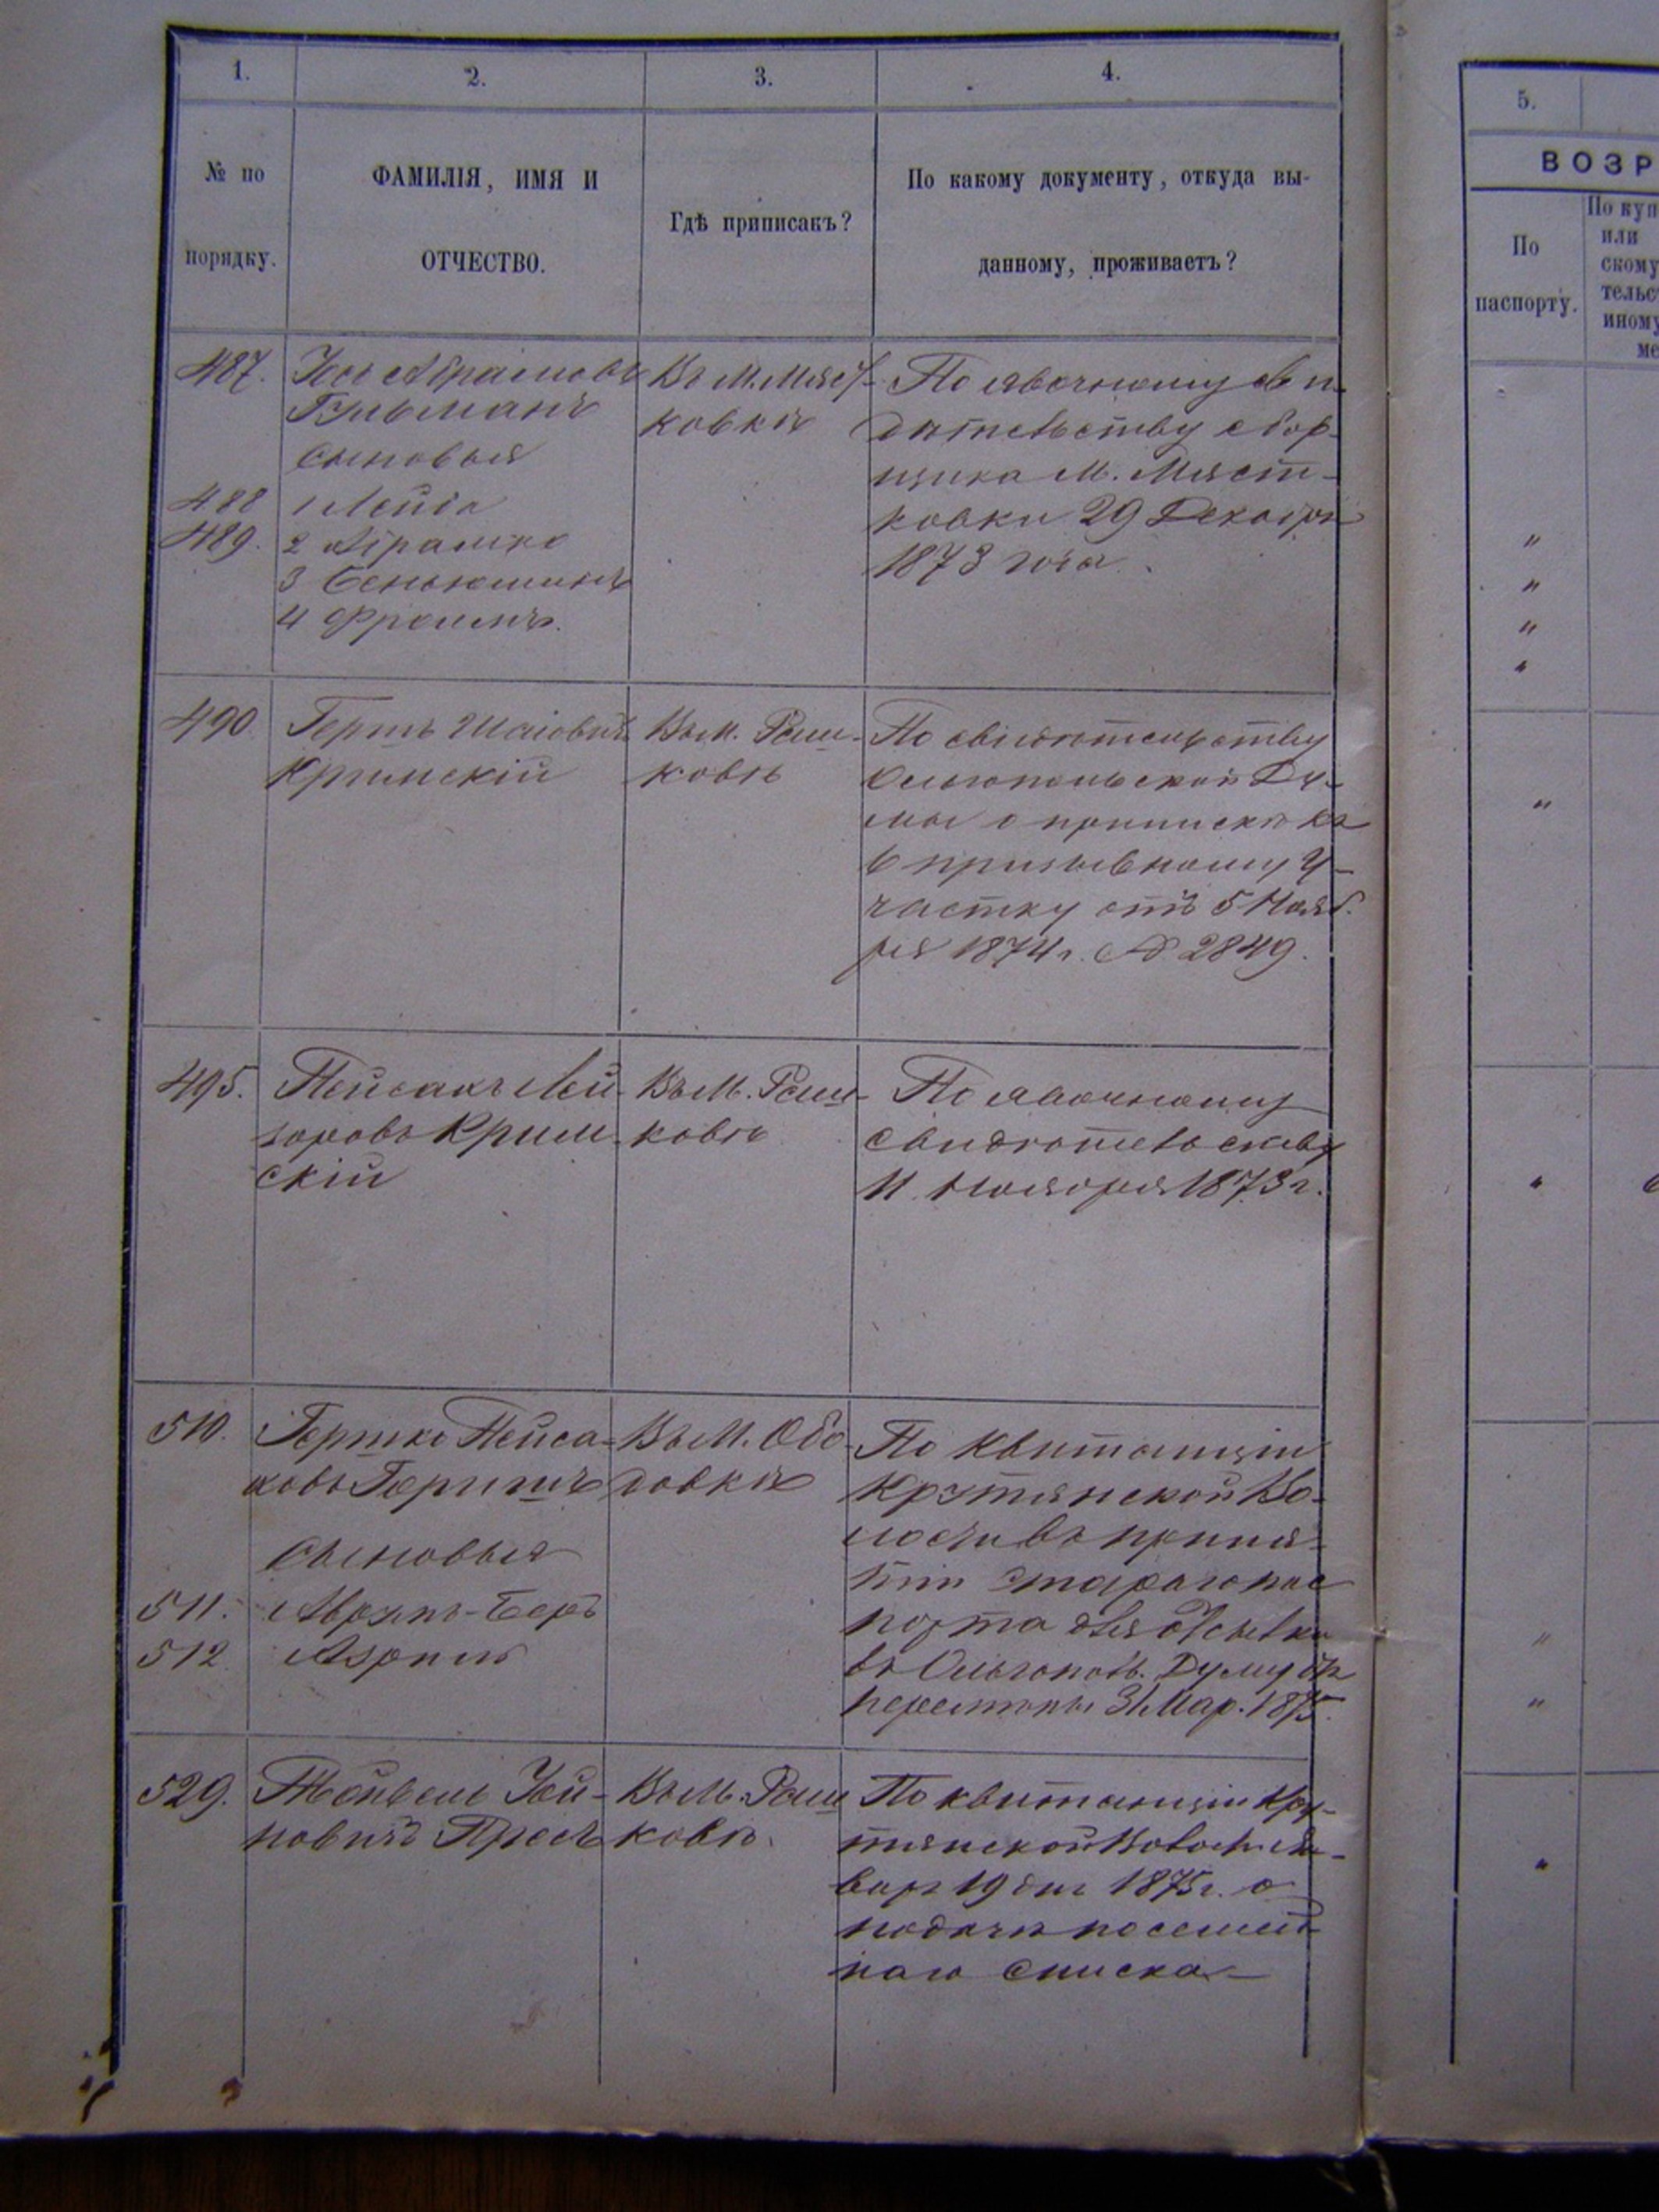 1.
2.
3.
4.
№ по
порядку.
ФАМИЛІЯ, ИМЯ И
ОТЧЕСТВО.
Гдѣ приписакъ?
По какому документу, откуда вы-
данному, проживаетъ?
487.
сыновья
488
1
489.
2 Абрамко
3 Беньюминъ
4 Фроимъ.
Въ М. Мяст-
ковкѣ
По явочному сви-
дѣтельству сбор-
щика М. Мяст-
ковки 29 Декабря
1873 года.
490.
Гершъ Шаіовичъ
Кримскій
Въ М. Раш-
ковѣ
По свидѣтельству
Ольгопольской Ду-
мы о припискѣ къ
6 призывному у-
частку отъ 5 Нояб.
ря 1874 г. № 2849.
495.
Пейсахъ Лей-
зоровъ Крим-
скій
Въ М. Раш-
ковѣ
По явочному
свидѣтельству
11 Ноября 1873 г.
510.
Гершко Пейса-
ховъ
сыновья
511.
Аврумъ-Беръ
512
Азриль
Въ М. Обо-
довкѣ
По квитанціи
Крутянской Во-
лости въ приня-
тіи стараго пас
порта для отсылки
въ Ольгополь. Думу для
перемѣны 31 Мар. 1875.
529.
Въ М. Раш
ковѣ.
По квитанціи Кру-
тянской Волости
19 дня 1875 г. о
подачи посемей-
наго списка
5.
ВОЗР
По
паспорту.
По куп
или
скому
тельс
иному
ме